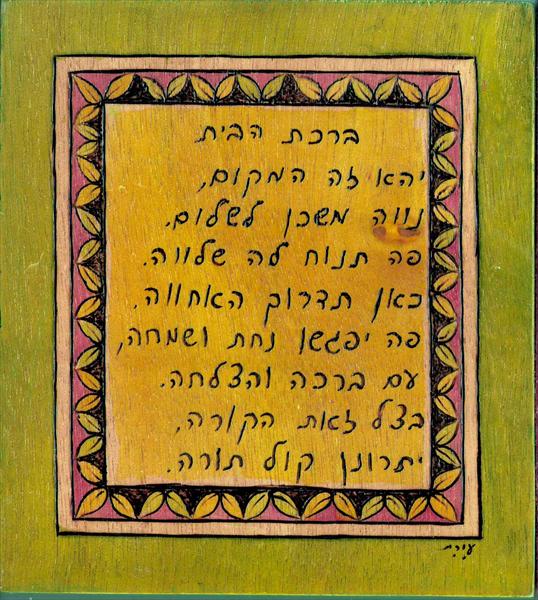 ברכת הבית
יהא זה המקום,
נווה משכן לשלום.
פה תנוח לה שלווה.
כאן תדרוך האחווה.
פה יפגשו נחת ושמחה,
עם ברכה והצלחה.
בצל זאת הקורה,
יתרונן קול תורה.